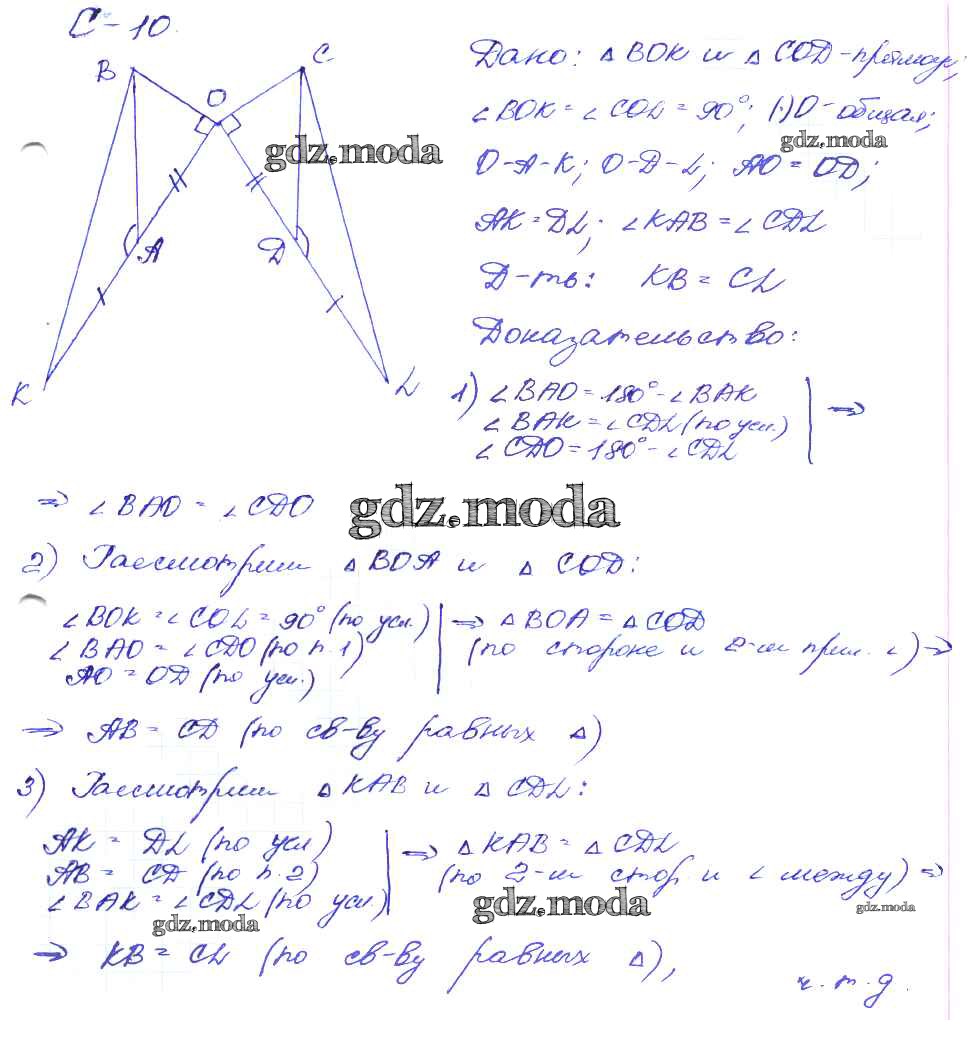 С-10.
B
C
O
A
D
K
L
Дано: △ BOK и △ COD - прямоуг;
∠BOK = ∠COL = 90°; (·)O - общая;
O-A-K; O-D-L; AO = OD;
AK = DL; ∠KAB = ∠CDL
Д-ть: KB = CL
Доказательство:
1) ∠BAO = 180° - ∠BAK
∠BAK = ∠CDL (по усл.)
∠CDO = 180° - ∠CDL
⇒
⇒ ∠BAO = ∠CDO
2) Рассмотрим △BOA и △COD:
∠BOK = ∠COL = 90° (по усл.)
∠BAO = ∠CDO (по п. 1)
AO = OD (по усл.)
⇒ △BOA = △COD
(по стороне и 2-м прил. ∠) ⇒
⇒ AB = CD (по св-ву равных △)
3) Рассмотрим △KAB и △CDL:
AK = DL (по усл)
AB = CD (по п. 2)
∠BAK = ∠CDL (по усл.)
⇒ △KAB = △CDL
(по 2-м стор. и ∠ между) ⇒
⇒ KB = CL (по св-ву равных △),
ч.т.д.
gdz.moda
gdz.moda
gdz.moda
gdz.moda
gdz.moda
gdz.moda